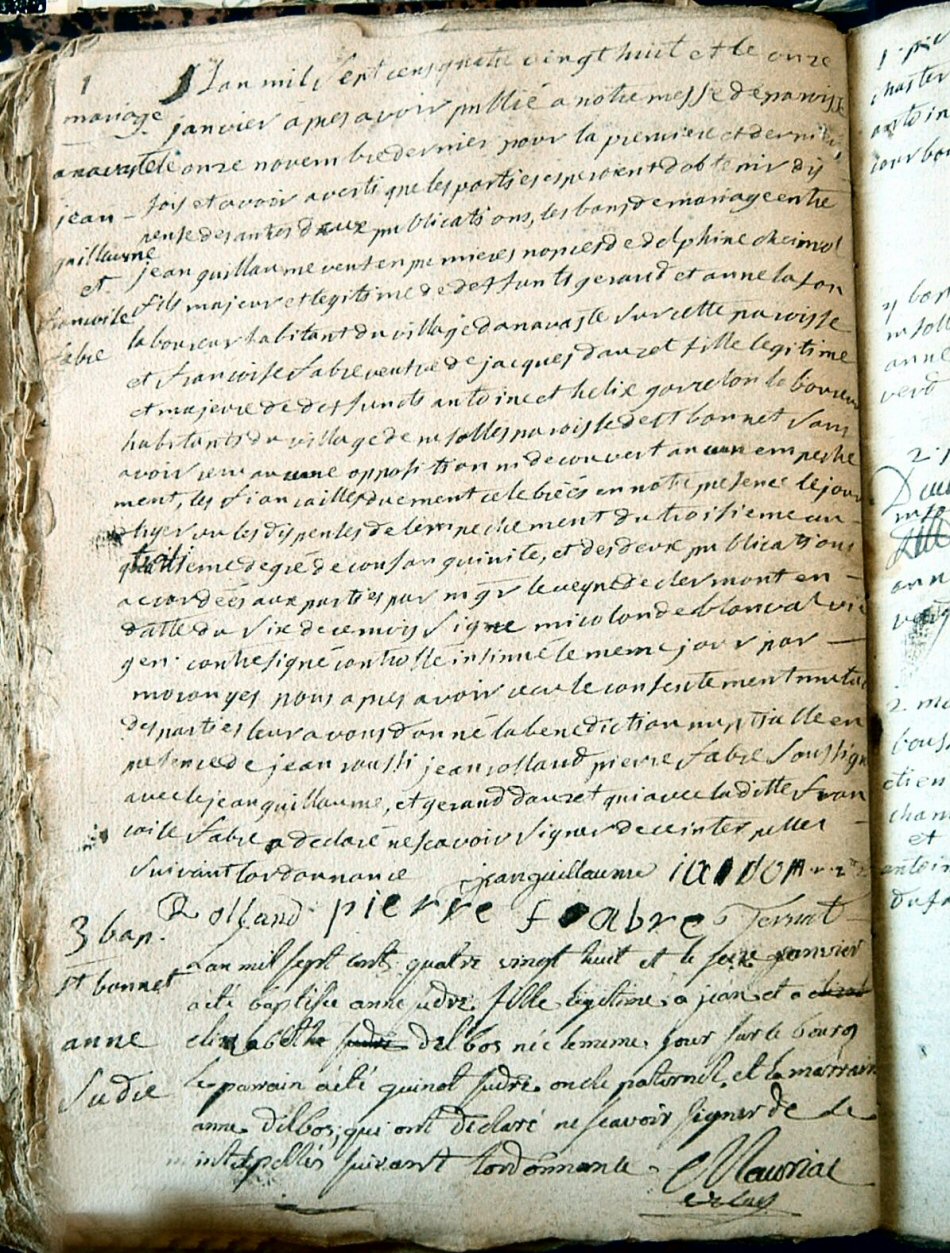 1
mariage
anavaste
jean
guillaume
et
francoise
fabre
Lan mil sept cens quatre vingt huit et le onze
janvier apres avoir publié a notre messe de paroisse
le onze novembre dernier pour la premiere et derniere
fois et avoir averti que les parties esperoient dobtenir dis
pense des autres deux publications, les bans de mariage entre
jean guillaume veuf en premieres nopces de delphine
fils majeur et legitime de deffunts gerard et anne lafon
laboureur habitant du village danavaste sur cette paroisse
et francoise fabre veuve de jacques dauzet fille legitime
et majeure de deffuncts antoine et helix laboureur
habitants du village de paroisse de st bonnet sans
avoir reru aucune opposition ni decouvert aucun empeche
ment, les fiancailles duement celebrées en notre presence le jour
dhyer vu les dispenses de lempechement du troisieme au
quatrieme degré de consanguinité, et des deux publications
accordées aux parties par mgr leveque de clermont en
datte du six de ce mois signe micolon de blanval vic
gen. contresigné controllé insinué le meme jour par
moranges nous apres avoir recu le consentement mutuel
des parties leur avons donné la benediction nuptialle en
presence de jean roussi jean rolland pierre fabre soussignes
avec le jean guillaume, et gerand dauzet qui avec la ditte fran
coise fabre a declaré ne scavoir signer de ce interpelles
suivant lordonnance jean guillaume
Rolland pierre fabre
3 bap.
st bonnet
anne
Sudre
Lan mil sept cents quatre vingt huit et le seize janvier
a été baptisée anne sudre fille legitime a jean et a
elizabeth delbos née le meme jour sur le bourg
le parrain a été quinot sudre oncle paternel, et la marraine
anne delbos, qui ont declaré ne scavoir signer de ce
interpellés suivant lordonnance. Mauriac